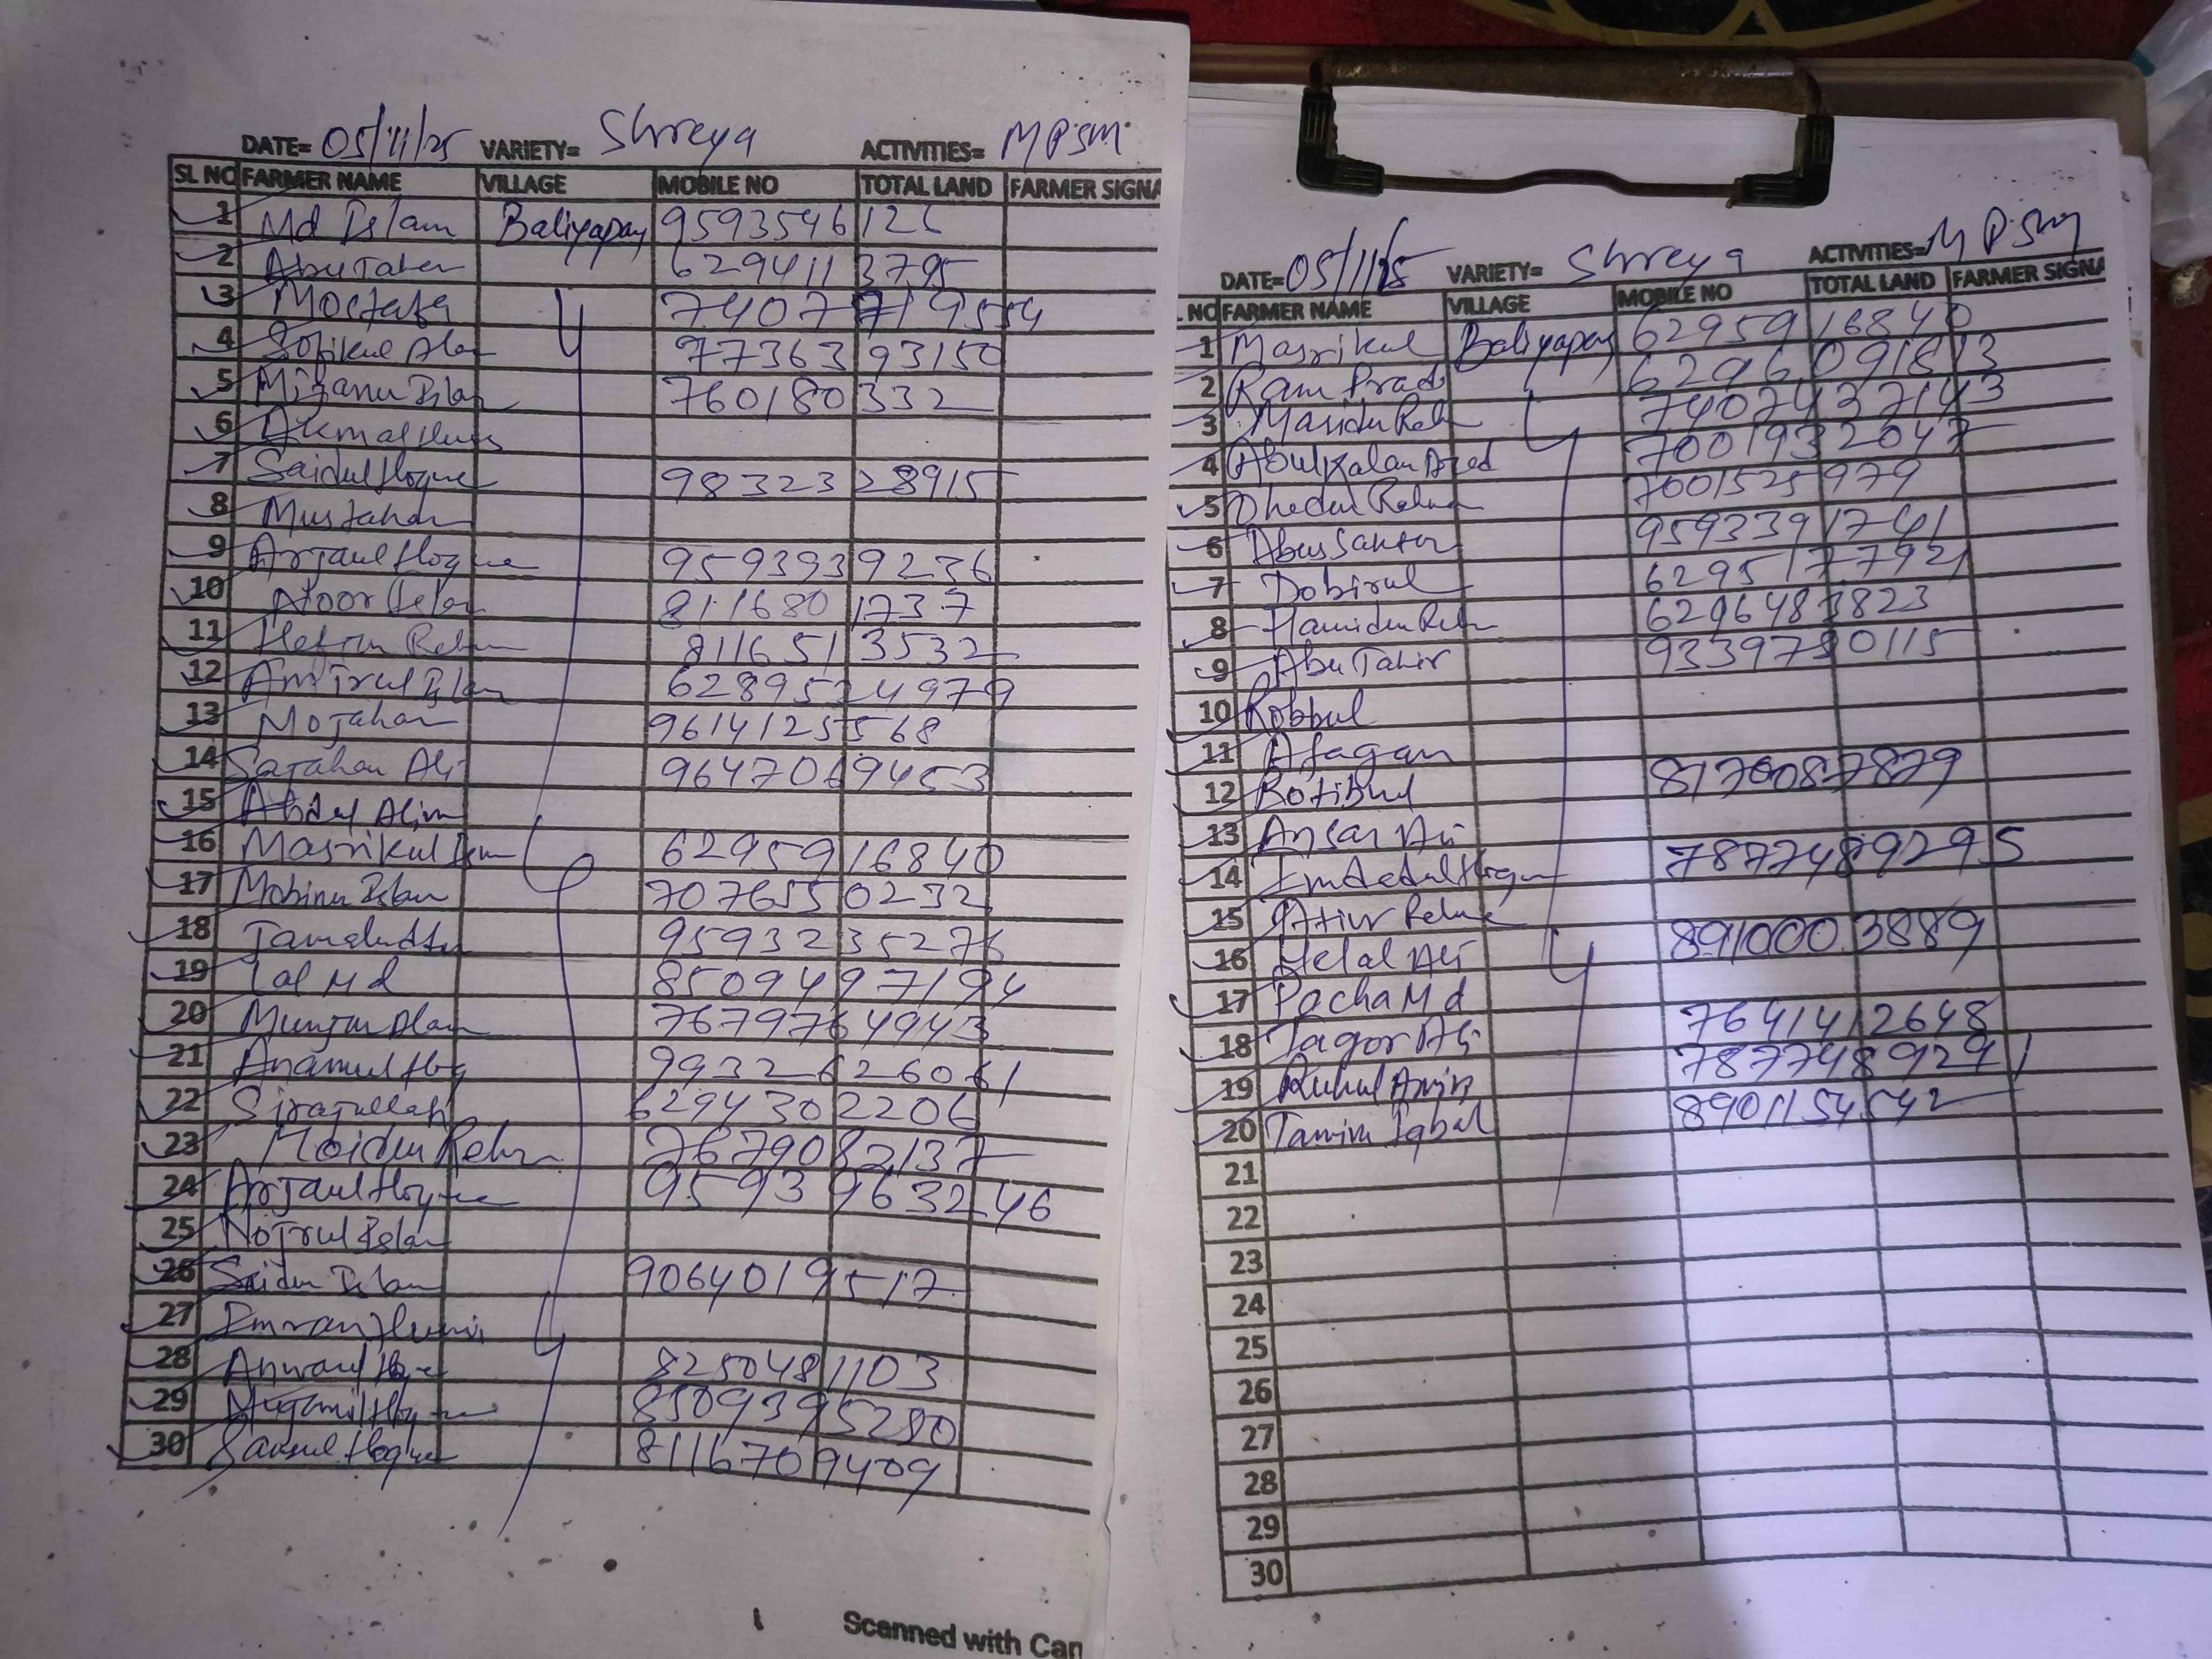 DATE= 05/11/25 VARIETY= Shreya ACTIVITIES= MPSM
SL NO FARMER NAME VILLAGE MOBILE NO TOTAL LAND FARMER SIGNA
1 Md Islam Baliyapay 959354612
2 Abu Taher 6294113795
3 Mostafa 7407719554
4 Sofikul Alam 7736393150
5 Mijanu Islam 760180332
6 Akmal
7 Saidul Hoque 9832328915
8 Mustahar
9 Arjaul Hoque 9593939236
10 Noor Islam 8116801737
11 Rehm 8116513532
12 Amirul Islam 6289524979
13 Mojahar 9614125568
14 Sajahan Ali 9647069453
15 Abdul Alim
16 Masrikul Islam 6295916840
17 Mobinu Islam 7076550232
18 Jamaluddin 9593235276
19 Lal Md 8509497194
20 Munjur Alam 7679764943
21 Anamul Hoq 9932626061
22 Sirajullah 6294302206
23 Moidur Rehm 7679082137
24 Arjaul Hoque 9593963246
25 Nojrul Islam
26 Saidu Islam 9064019517
27 Imran
28 Anwarul Hoque 8250481103
29 Mujamil Hoque 8509395280
30 Samsul Hoque 8116709409
Scanned with Can
DATE= 05/11/25 VARIETY= Shreya ACTIVITIES= MPSM
NO FARMER NAME VILLAGE MOBILE NO TOTAL LAND FARMER SIGNA
1 Masrikul Baliyapay 6295916840
2 Ram Prad 6296091813
3 Maridur Reh 7407437143
4 Abul Kalam Azad 7001932047
5 7001525979
6 Abus Sattar 9593391741
7 Dobirul 6295177921
8 Hamidur Rehm 6296483823
9 Abu Tahir 9339780115
10 Robbul
11 Afagan
12 Rofibul 8176087879
13 Ansar Ali
14 Imdadul Hoque 7877489295
15 Atiur Rehm
16 Helal Ali 8910003889
17 Pocha Md
18 Tagor Ali 7641412648
19 Ruhul Amin 7877489291
20 Tamim Iqbal 8901154542
21
22
23
24
25
26
27
28
29
30